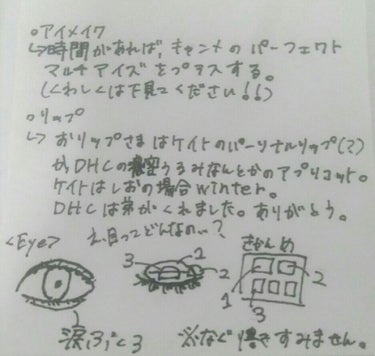 ○アイメイク
↳時間があれば、キャンメのパーフェクト
マルチアイズをプラスする。
(くわしくは下見てください!!)
○リップ
↳おリップさまはケイトのパーソナルリップ(?)
か、DHCの濃密うるみなんとかのアプリコット。
ケイトはしおの場合winter。
DHCは弟がくれました。ありがとう。
<Eye> え、目ってどんなの…? きゃんめ
3 1 2
1 2 3
涙ぶくろ ※なぐり書きすみません。